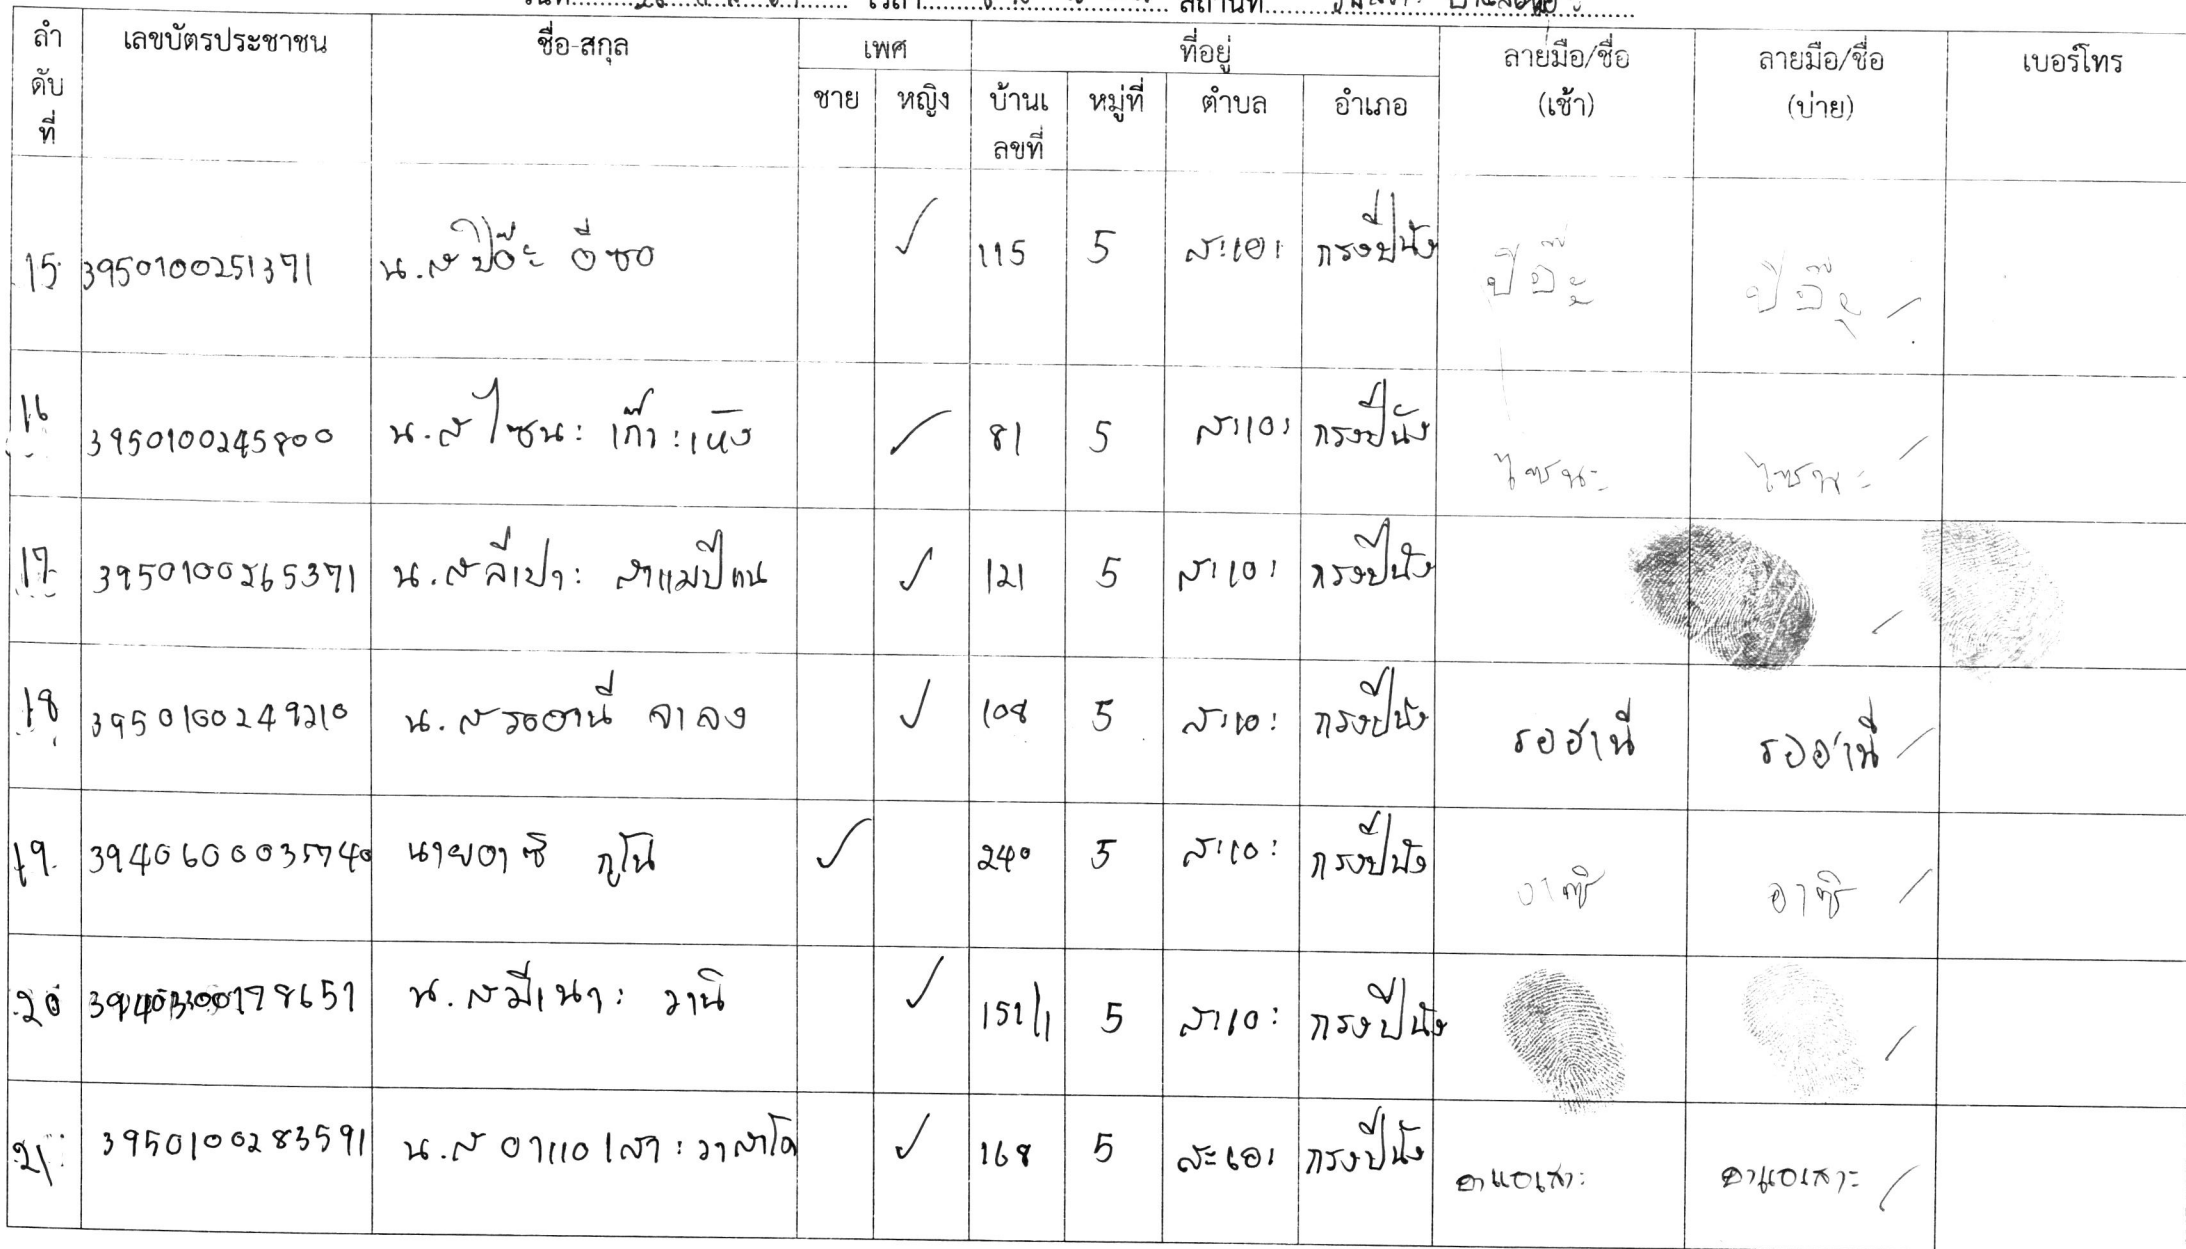 สถานที่
ลำดับที่ เลขบัตรประชาชน ชื่อ-สกุล เพศ ที่อยู่ ลายมือ/ชื่อ (เช้า) ลายมือ/ชื่อ (บ่าย) เบอร์โทร
ชาย หญิง บ้านเลขที่ หมู่ที่ ตำบล อำเภอ
15 3950100251371 น.ส ปีอ๊ะ อีซอ ✓ 115 5 สะเอะ กรงปีนัง ปีอ๊ะ ปีอ๊ะ /
16 3950100245800 น.ส ไซนะ เก๊าะเห็ง ✓ 81 5 สะเอะ กรงปีนัง ไซนะ ไซนะ /
17 3950100265371 น.ส ลีเปาะ สาแมปีแน ✓ 121 5 สะเอะ กรงปีนัง /
18 3950100249210 น.ส รอฮานี จาลง ✓ 108 5 สะเอะ กรงปีนัง รอฮานี รอฮานี /
19. 3940600035740 นายอาซิ กูโน ✓ 240 5 สะเอะ กรงปีนัง อาซิ อาซิ /
20 น.ส มีเนาะ วานิ ✓ 151/1 5 สะเอะ กรงปีนัง /
21 3950100283591 น.ส อาแอเสาะ วาสาโด ✓ 168 5 สะเอะ กรงปีนัง อาแอเสาะ อาแอเสาะ /